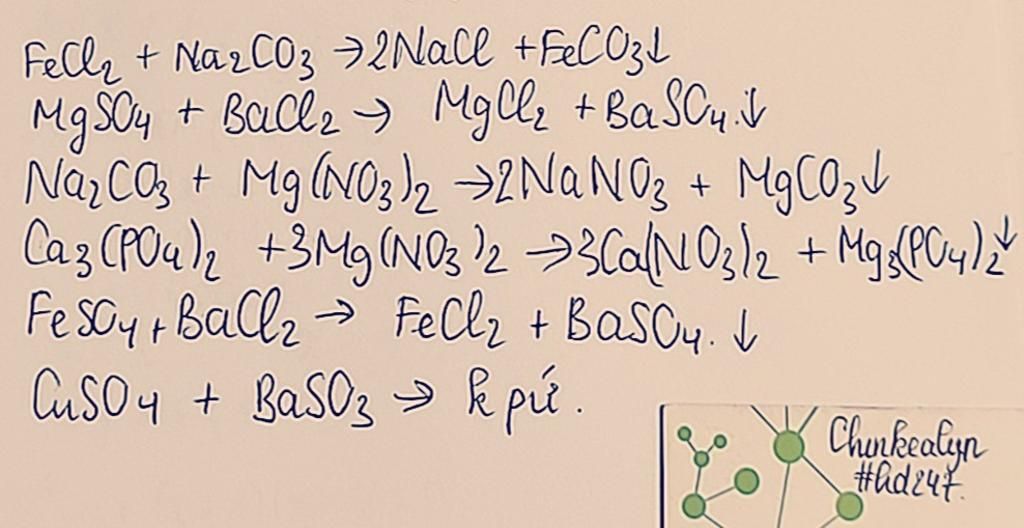 FeCl₂ + Na₂CO₃ → 2NaCl + FeCO₃↓
MgSO₄ + BaCl₂ → MgCl₂ + BaSO₄.↓
Na₂CO₃ + Mg(NO₃)₂ → 2NaNO₃ + MgCO₃↓
Ca₃(PO₄)₂ + 3Mg(NO₃)₂ → 3Ca(NO₃)₂ + Mg₃(PO₄)₂↓
FeSO₄ + BaCl₂ → FeCl₂ + BaSO₄. ↓
CuSO₄ + BaSO₃ → k pứ.
#hd247.